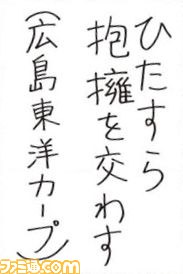 ひたすら
抱擁を交わす
(広島東洋カープ)
ファミ通.com